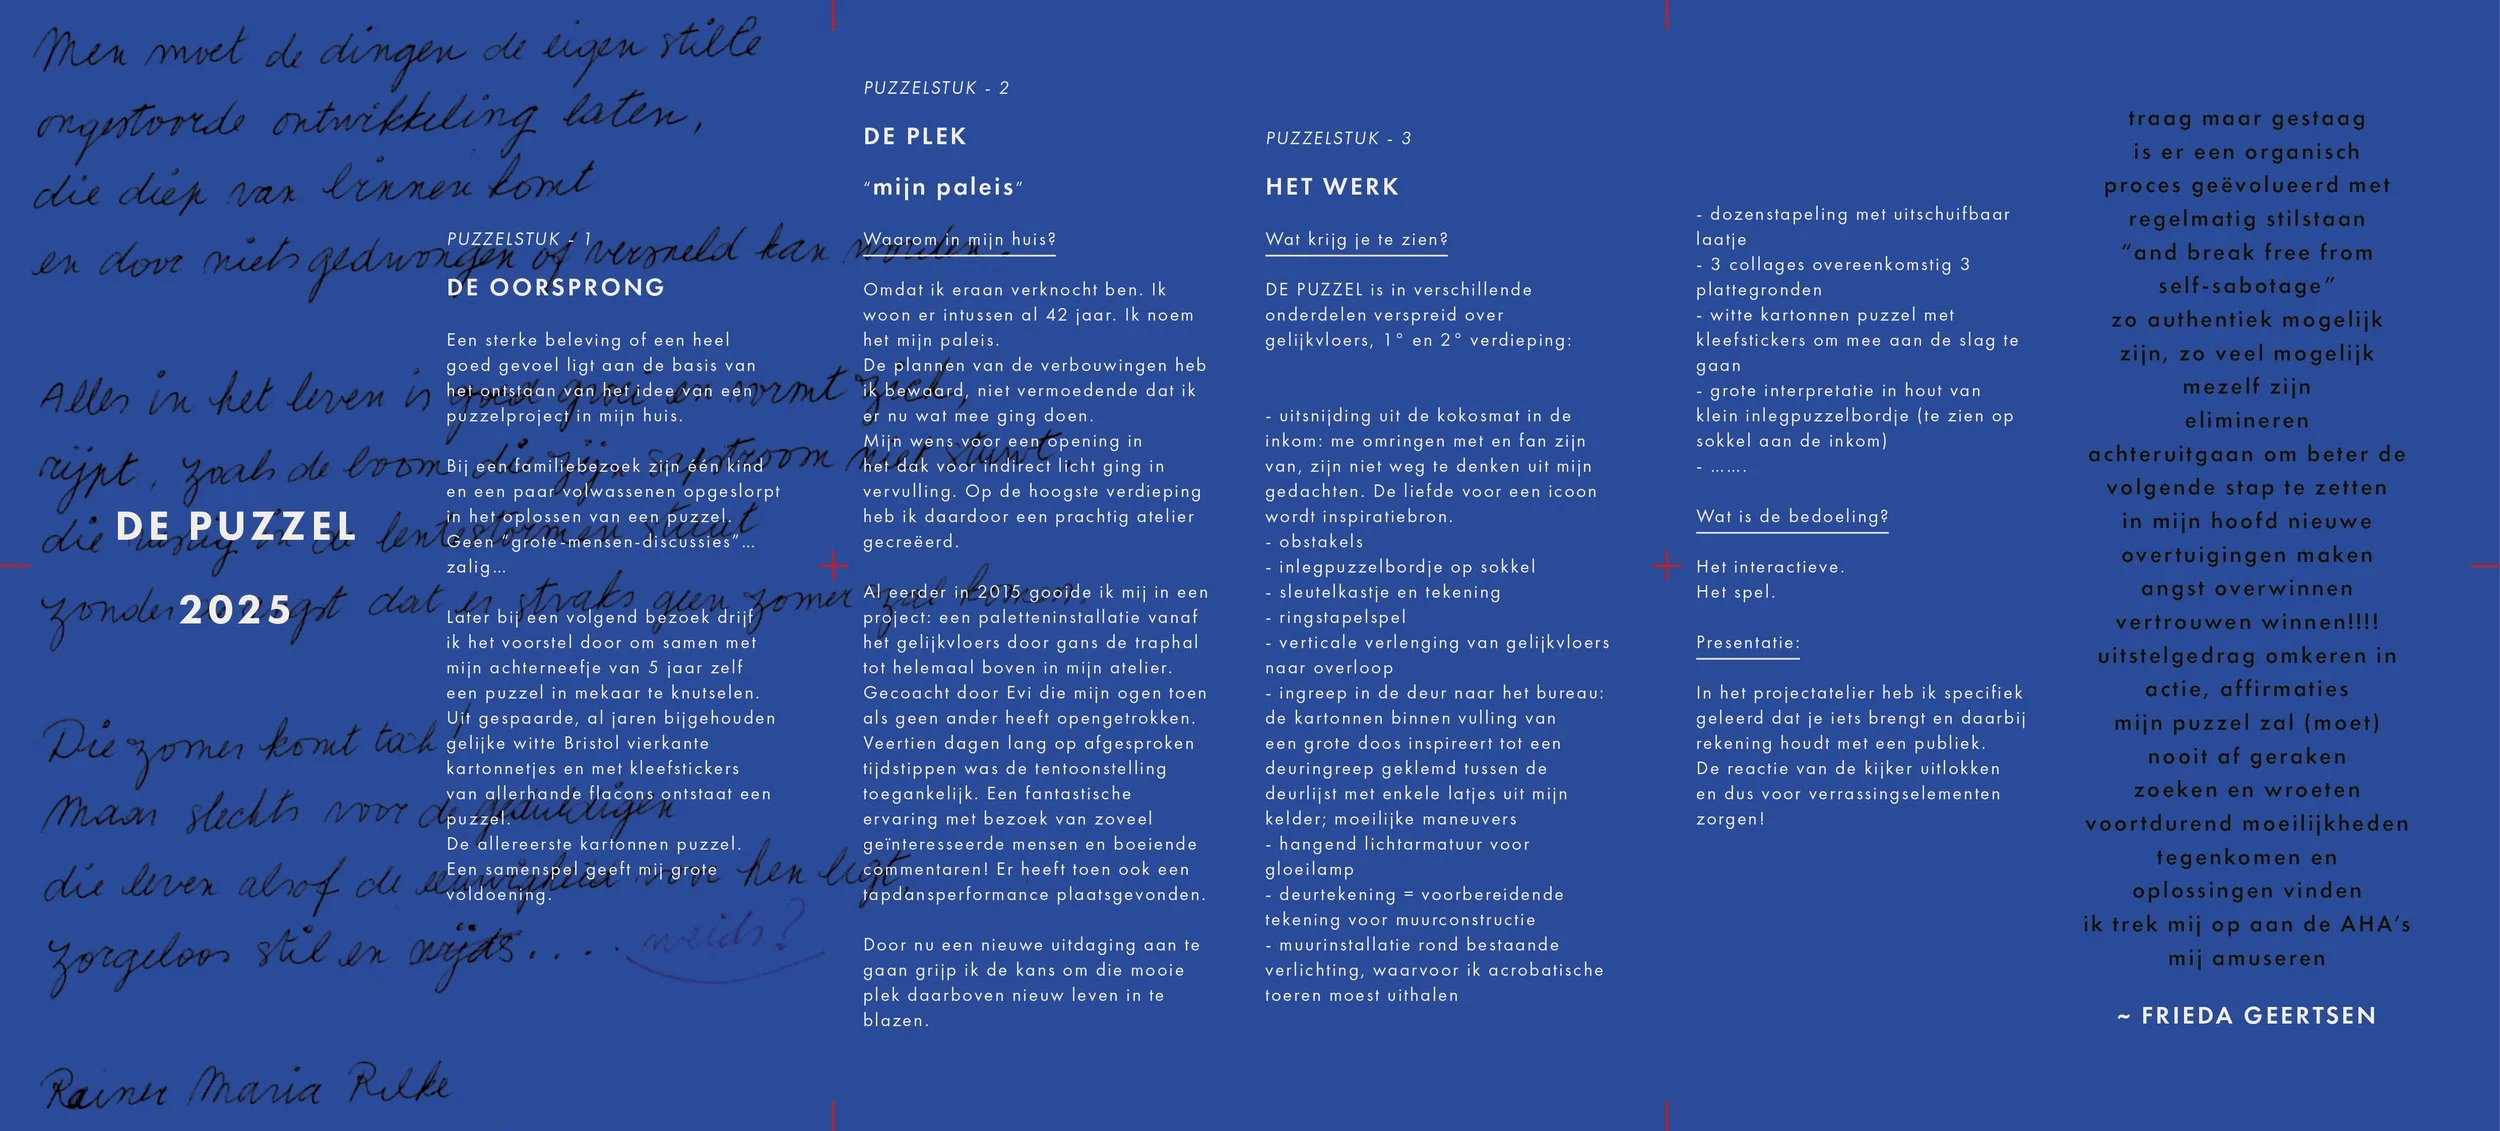 Men moet de dingen de eigen stilte
ongestoorde ontwikkeling laten,
die diep van binnen komt
en door niets gedwongen of versneld kan worden.
Alles in het leven is groei en vormt zich,
rijpt, zoals de boom die zijn sapstroom niet stuwt,
die rustig in de lentestormen staat
zonder angst dat er straks geen zomer zal komen.
Die zomer komt toch!
Maar slechts voor de geduldigen
die leven alsof de eeuwigheid voor hen ligt,
zorgeloos stil en wijds....
weids?
Rainer Maria Rilke
DE PUZZEL
2025
PUZZELSTUK - 1
DE OORSPRONG
Een sterke beleving of een heel
goed gevoel ligt aan de basis van
het ontstaan van het idee van een
puzzelproject in mijn huis.
Bij een familiebezoek zijn één kind
en een paar volwassenen opgeslorpt
in het oplossen van een puzzel.
Geen “grote-mensen-discussies”...
zalig...
Later bij een volgend bezoek drijf
ik het voorstel door om samen met
mijn achterneefje van 5 jaar zelf
een puzzel in mekaar te knutselen.
Uit gespaarde, al jaren bijgehouden
gelijke witte Bristol vierkante
kartonnetjes en met kleefstickers
van allerhande flacons ontstaat een
puzzel.
De allereerste kartonnen puzzel.
Een samenspel geeft mij grote
voldoening.
PUZZELSTUK - 2
DE PLEK
“mijn paleis”
Waarom in mijn huis?
Omdat ik eraan verknocht ben. Ik
woon er intussen al 42 jaar. Ik noem
het mijn paleis.
De plannen van de verbouwingen heb
ik bewaard, niet vermoedende dat ik
er nu wat mee ging doen.
Mijn wens voor een opening in
het dak voor indirect licht ging in
vervulling. Op de hoogste verdieping
heb ik daardoor een prachtig atelier
gecreëerd.
Al eerder in 2015 gooide ik mij in een
project: een paletteninstallatie vanaf
het gelijkvloers door gans de traphal
tot helemaal boven in mijn atelier.
Gecoacht door Evi die mijn ogen toen
als geen ander heeft opengetrokken.
Veertien dagen lang op afgesproken
tijdstippen was de tentoonstelling
toegankelijk. Een fantastische
ervaring met bezoek van zoveel
geïnteresseerde mensen en boeiende
commentaren! Er heeft toen ook een
tapdansperformance plaatsgevonden.
Door nu een nieuwe uitdaging aan te
gaan grijp ik de kans om die mooie
plek daarboven nieuw leven in te
blazen.
PUZZELSTUK - 3
HET WERK
Wat krijg je te zien?
DE PUZZEL is in verschillende
onderdelen verspreid over
gelijkvloers, 1° en 2° verdieping:
- uitsnijding uit de kokosmat in de
inkom: me omringen met en fan zijn
van, zijn niet weg te denken uit mijn
gedachten. De liefde voor een icoon
wordt inspiratiebron.
- obstakels
- inlegpuzzelbordje op sokkel
- sleutelkastje en tekening
- ringstapelspel
- verticale verlenging van gelijkvloers
naar overloop
- ingreep in de deur naar het bureau:
de kartonnen binnen vulling van
een grote doos inspireert tot een
deuringreep geklemd tussen de
deurlijst met enkele latjes uit mijn
kelder; moeilijke maneuvers
- hangend lichtarmatuur voor
gloeilamp
- deurtekening = voorbereidende
tekening voor muurconstructie
- muurinstallatie rond bestaande
verlichting, waarvoor ik acrobatische
toeren moest uithalen
- dozenstapeling met uitschuifbaar
laatje
- 3 collages overeenkomstig 3
plattegronden
- witte kartonnen puzzel met
kleefstickers om mee aan de slag te
gaan
- grote interpretatie in hout van
klein inlegpuzzelbordje (te zien op
sokkel aan de inkom)
- .......
Wat is de bedoeling?
Het interactieve.
Het spel.
Presentatie:
In het projectatelier heb ik specifiek
geleerd dat je iets brengt en daarbij
rekening houdt met een publiek.
De reactie van de kijker uitlokken
en dus voor verrassingselementen
zorgen!
traag maar gestaag
is er een organisch
proces geëvolueerd met
regelmatig stilstaan
“and break free from
self-sabotage”
zo authentiek mogelijk
zijn, zo veel mogelijk
mezelf zijn
elimineren
achteruitgaan om beter de
volgende stap te zetten
in mijn hoofd nieuwe
overtuigingen maken
angst overwinnen
vertrouwen winnen!!!!
uitstelgedrag omkeren in
actie, affirmaties
mijn puzzel zal (moet)
nooit af geraken
zoeken en wroeten
voortdurend moeilijkheden
tegenkomen en
oplossingen vinden
ik trek mij op aan de AHA’s
mij amuseren
~ FRIEDA GEERTSEN